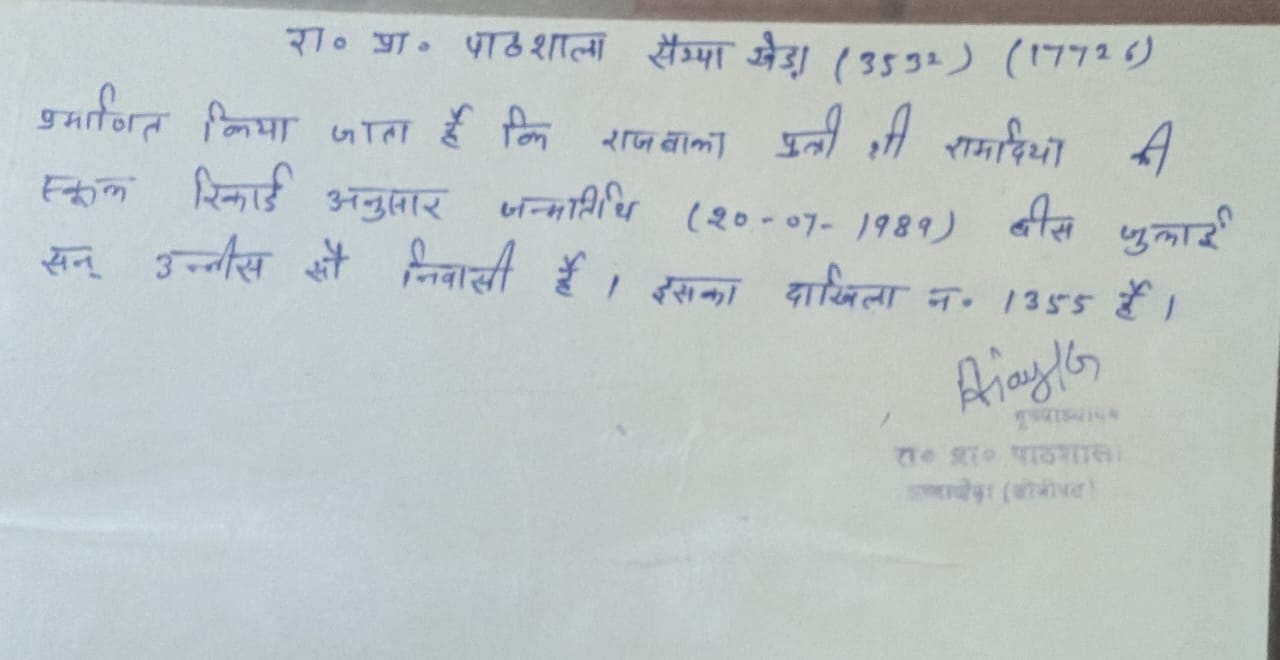 रा० प्रा० पाठशाला सैय्या खेड़ा (3532) (17726)
प्रमाणित किया जाता है कि राजबाला पुत्री श्री रामदिया की
स्कूल रिकार्ड अनुसार जन्मतिथि (20-07-1989) बीस जुलाई
सन् उन्नीस सौ निवासी हैं। इसका दाखिला न० 1355 हैं।
मुख्याध्यापक
रा० प्रा० पाठशाला
(सोनीपत)